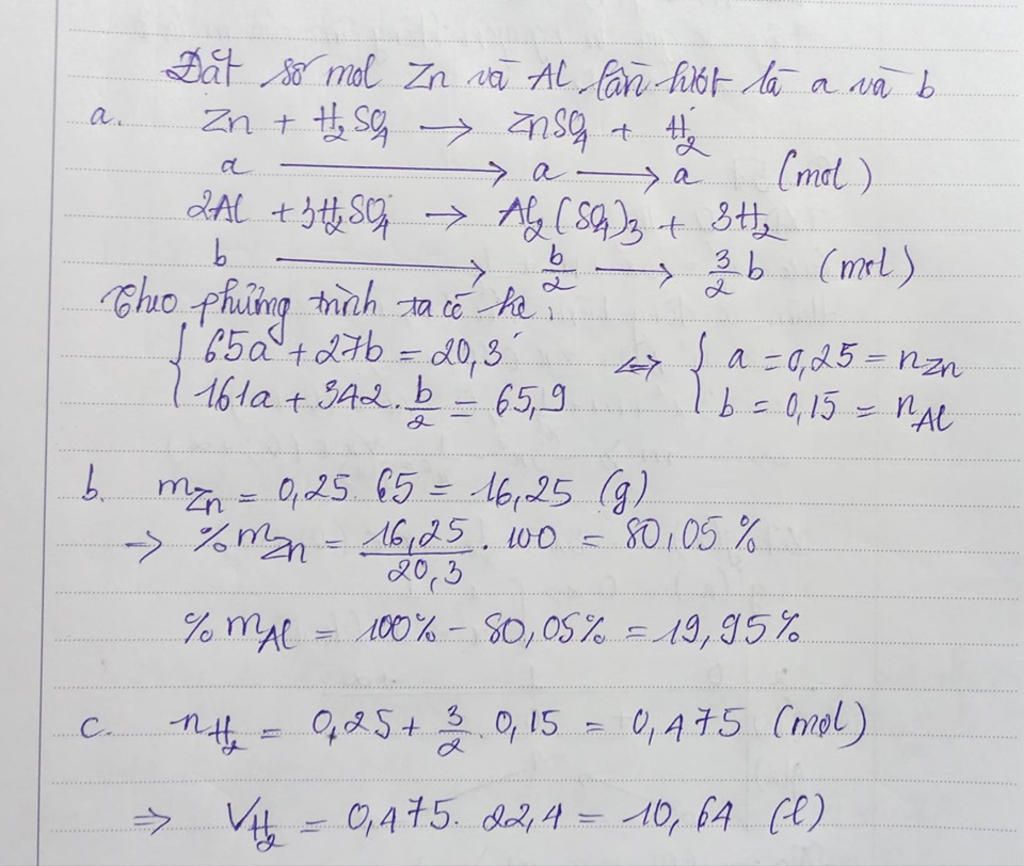 Đặt số mol Zn và Al lần lượt là a và b
a. Zn + H₂SO₄ → ZnSO₄ + H₂
a → a → a (mol)
2Al + 3H₂SO₄ → Al₂(SO₄)₃ + 3H₂
b → b/2 → 3/2 b (mol)
Theo phương trình ta có hệ:
{ 65a + 27b = 20,3 <=> { a = 0,25 = nZn
161a + 342.b/2 = 65,9 b = 0,15 = nAl
b. mZn = 0,25.65 = 16,25 (g)
→ %mZn = 16,25/20,3 . 100 = 80,05%
%mAl = 100% - 80,05% = 19,95%
c. nH₂ = 0,25 + 3/2.0,15 = 0,475 (mol)
=> VH₂ = 0,475.22,4 = 10,64 (l)